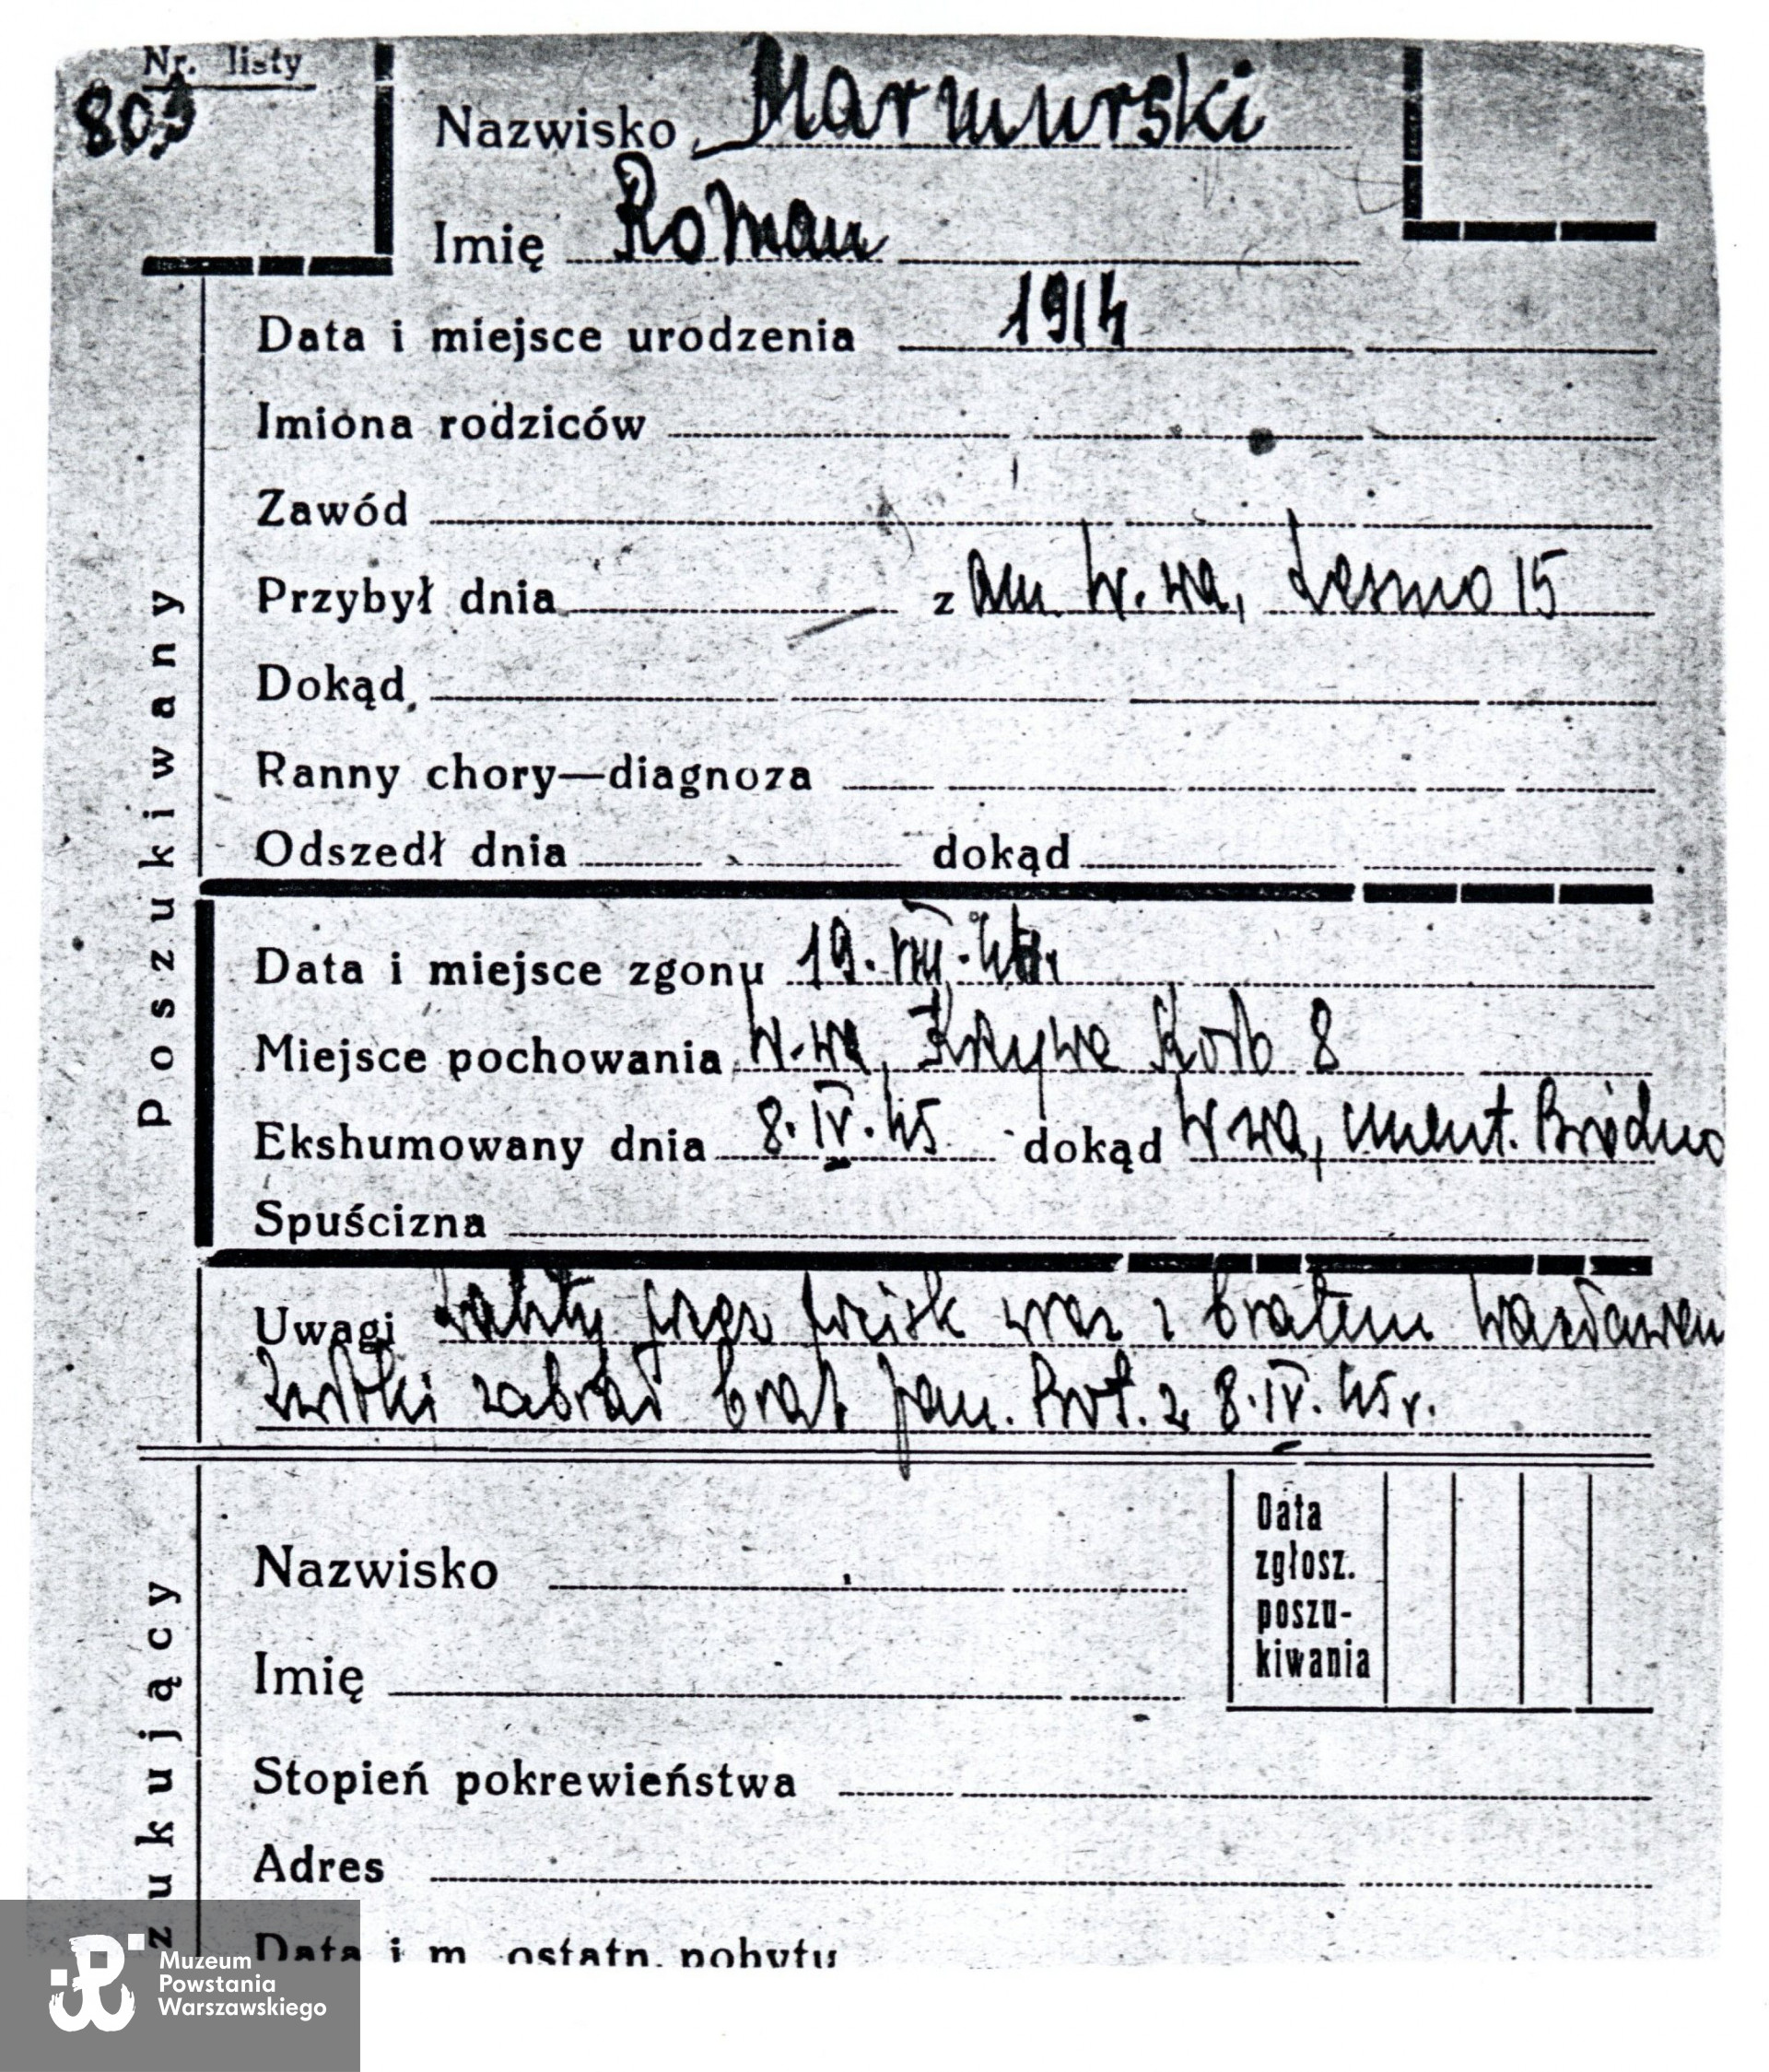 Nr. listy
803
Nazwisko Marmurski
Imię Roman
Data i miejsce urodzenia 1914
Imiona rodziców
Zawód
Przybył dnia z am. W-wa, Leszno 15
Dokąd
Ranny chory—diagnoza
Odszedł dnia dokąd
Data i miejsce zgonu 19.VIII.44r.
Miejsce pochowania W-wa, Krzywe Koło 8
Ekshumowany dnia 8.IV.45 dokąd W-wa, cment. Bródno
Spuścizna
Uwagi Zabity przez pocisk wraz z bratem Wacławem
Zwłoki zabrał brat pan. Prot. z 8.IV.45r.
Poszukiwany
Nazwisko
Imię
Data
zgłosz.
poszu-
kiwania
Stopień pokrewieństwa
Adres
Data i m. ostatn. pobytu
zukujący
Muzeum
Powstania
Warszawskiego